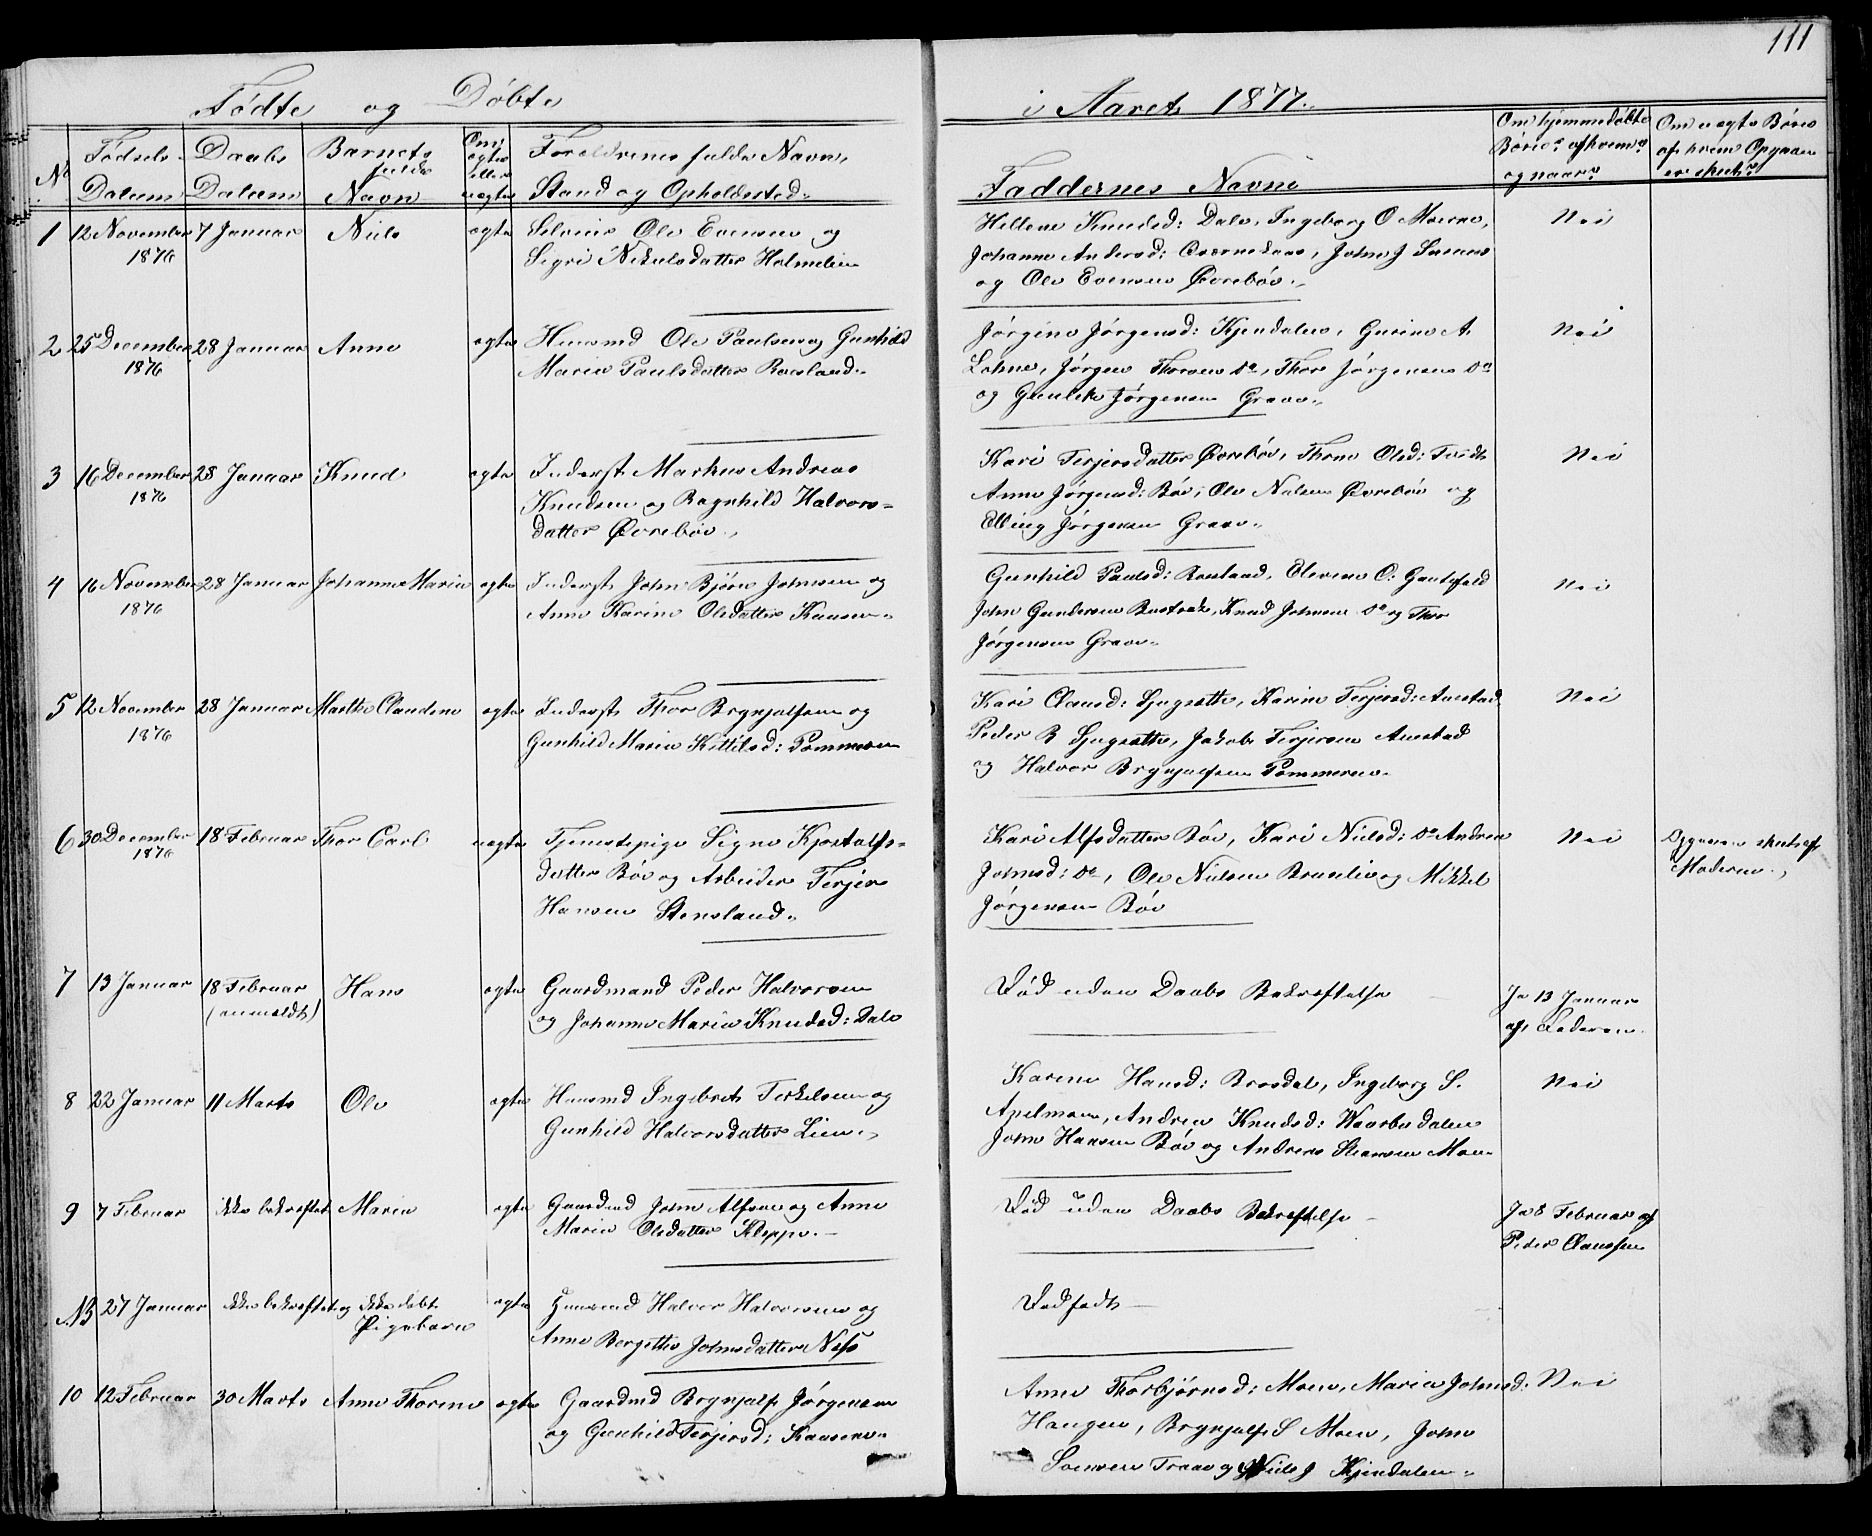 111
Fødte og Døbte i Aaret 1877.
No
Fødsels Datum
Daabs Datum
Barnets fulde Navn
Om ægte eller uægte
Forældrenes fulde Navn, Stand og Opholdssted.
Faddernes Navne
Om hjemmedøbte Børn? af hvem? og naar?
Om uægte Børn af hvem Opgaven er skeet?
1 12 November 1876 7 Januar Niels ægte
Selveier Ole Evensen og
Sigri Nikulsdatter Holmelien
Hellene Knudsd: Dale, Ingeborg O Moerne,
Johanne Andersd: , John J
og Ole Evensen Øvrebøe.
Nei
2 25 December 1876 28 Januar Anne ægte
Huusmd Ole Paulsen og Gunhild
Marie Paulsdatter Roesland.
Jørgine Jørgensd: Kjendalen, Gurine A.
Lohne, Jørgen Thorsen do, Thor Jørgensen do
og Gunleik Jørgensen Graae.
Nei
3 16 December 1876 28 Januar Knud ægte
Inderst Markus Andreas
Knudsen og Ragnhild Halvors-
datter Øvrebøe.
Kari Terjersdatter Øvrebøe, Thrine Olsd: Tvedt
Anne Jørgensd: Bøe, Ole Nielsen Øvrebøe og
Elling Jørgensen Graae.
Nei
4 16 November 1876 28 Januar Johanne Marie ægte
Inderst John Bjørn Johnsen og
Anne Karine Olsdatter Kaasen.
Gunhild Paulsd: Roeslaad, Elevine O: Gautefald
John Gundersen , Knud Johnsen do og Thor
Jørgensen Graae.
Nei
5 12 November 1876 28 Januar Marthe Claudine ægte
Inderst Thor Brynjulfsen og
Gunhild Marie Kittilsd: Pommeren
Kari Clausd: , Karine Terjersd: Aaestad
Peder B , Jakob Terjersen Aaestad
og Halvor Brynjulfsen Pommeren.
Nei
6 30 December 1876 18 Februar Thor Carl uægte
Tjenestepige Signe Kjøstolfs-
datter Bøe og Arbeider Terjer
Hansen Stensland.
Kari Alfsdatter Bøe, Kari Nielsd: do Andrea
Johnsd: do, Ole Nielsen Braaelie og Mikkel
Jørgensen Bøe
Nei
Opgaven skeet af
Moderen.
7 13 Januar 18 Februar (anmeldt) Hans ægte
Gaardmand Peder Halvorsen
og Johanne Marie Knudsd: Dale
Død uden Daabs Bekræftelse
Ja 13 Januar
af Faderen.
8 22 Januar 11 Marts Ole ægte
Huusmd Ingebret Terkelsen og
Gunhild Halvorsdatter Lien.
Karine Hansd: Brosdal, Ingeborg S.
Apelmoen, Andrea Knudsd: Waasbudalen
John Hansen Bøe og Andreas Steensen Moen
Nei
9 7 Februar ikke bekræftet Marie ægte
Gaardmd John Alfsen og Anne
Marie Olsdatter Kleppe.
Død uden Daabs Bekræftelse
Ja 8 Februar af
Peder Claussen
NB 27 Januar ikke bekræftet og ikke døbt Pigebarn ægte
Huusmd Halvor Halvorsen og
Anne Bergitte Johnsdatter Næss
Dødfødt
10 12 Februar 30 Marts Anne Thorine ægte
Gaardmd Brynjulf Jørgensen
og Gunhild Terjersd: Kaasene.
Anne Thorbjørnsd: Moen, Marie Johnsd:
Haugen, Brynjulf S Moen, John
Soensen Traae og Niels J Kjendalen.
Nei